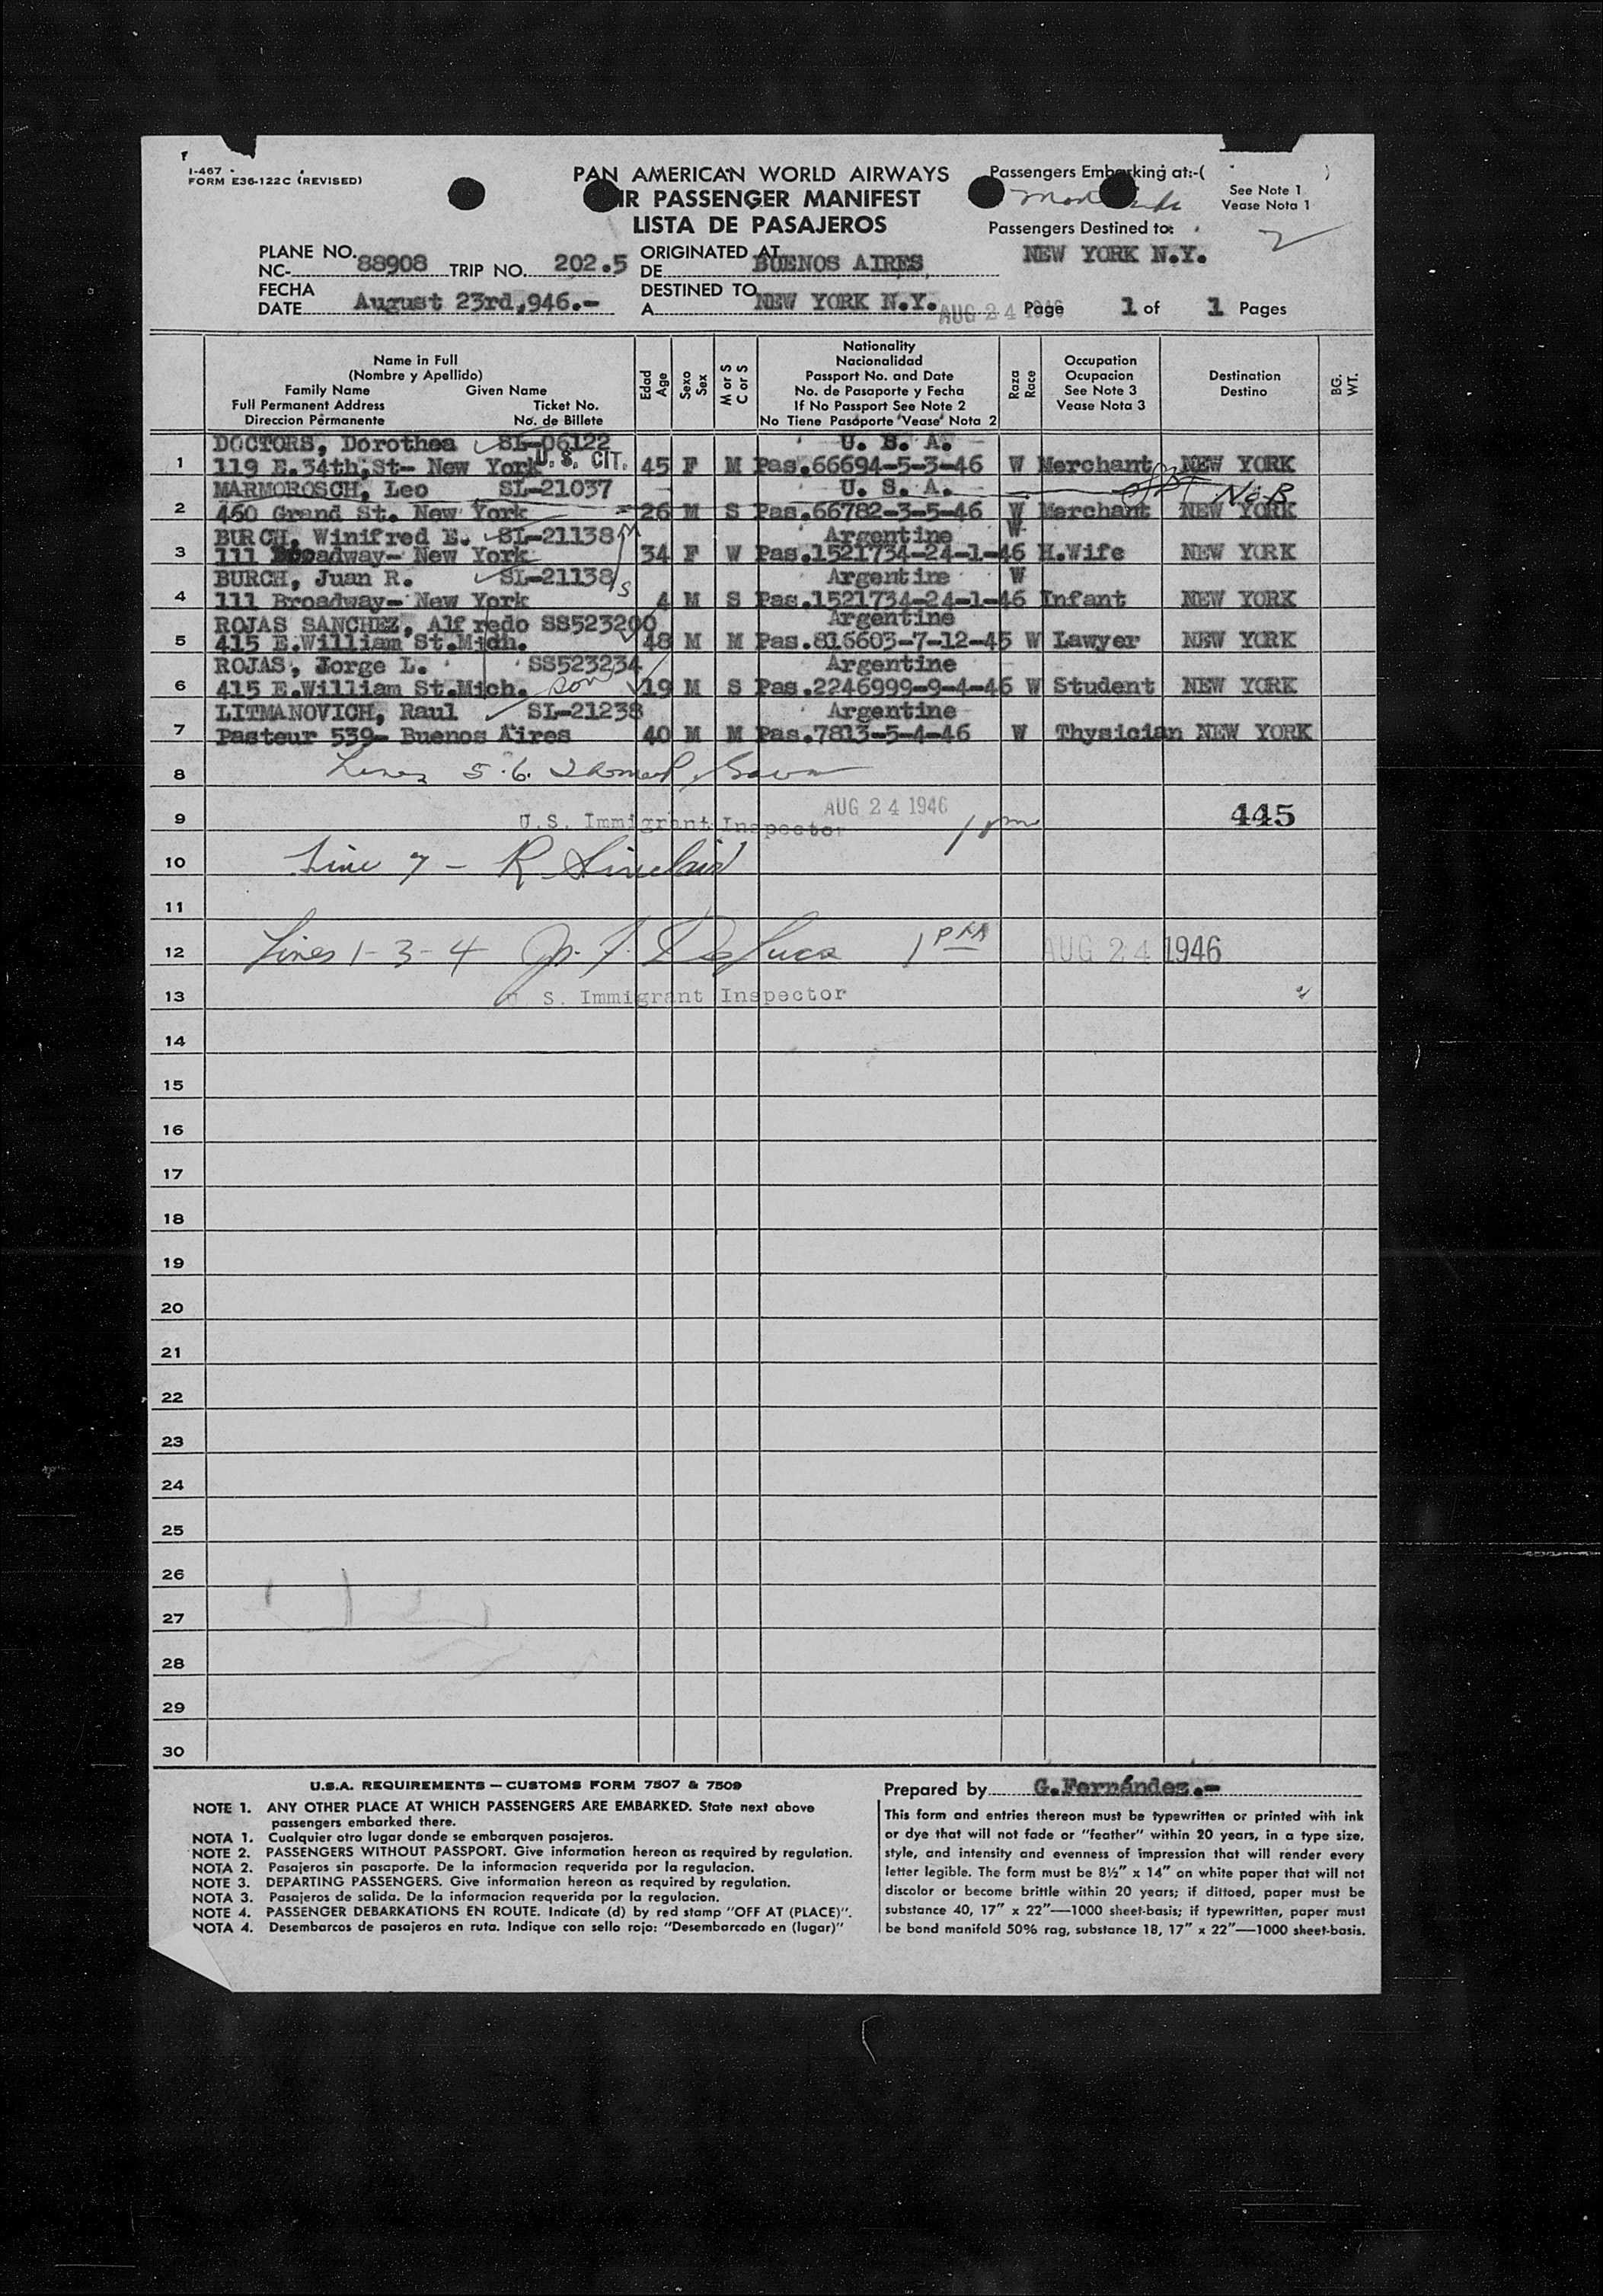 I-467
FORM E36-122C (REVISED)
PAN AMERICAN WORLD AIRWAYS
IR PASSENGER MANIFEST
LISTA DE PASAJEROS
Passengers Embarking at:-( )
See Note 1
Vease Nota 1
Passengers Destined to:
NEW YORK N.Y.
2
PLANE NO.
NC- 88908 TRIP NO. 202.5
ORIGINATED AT
DE BUENOS AIRES
FECHA
DATE August 23rd,946.-
DESTINED TO
A NEW YORK N.Y. AUG 24 1946
Page 1 of 1 Pages
Name in Full
(Nombre y Apellido)
Family Name Given Name
Full Permanent Address Ticket No.
Direccion Permanente No. de Billete
Edad
Age
Sexo
Sex
M or S
C or S
Nationality
Nacionalidad
Passport No. and Date
No. de Pasaporte y Fecha
If No Passport See Note 2
No Tiene Pasaporte Vease Nota 2
Raza
Race
Occupation
Ocupacion
See Note 3
Vease Nota 3
Destination
Destino
BG.
WT.
DOCTORS, Dorothea SL-06122 U. S. A.
1 119 E.34th,St- New York U. S. CIT. 45 F M Pas.66694-5-3-46 W Merchant NEW YORK
MARMOROSCH, Leo SL-21037 U. S. A. NOB
2 460 Grand St. New York 26 M S Pas.66782-3-5-46 W Merchant NEW YORK
BURCH, Winifred E. SL-21138 Argentine W
3 111 Broadway- New York 34 F W Pas.1521734-24-1-46 H.Wife NEW YORK
BURCH, Juan R. SL-21138 Argentine W
4 111 Broadway- New York 4 M S Pas.1521734-24-1-46 Infant NEW YORK
ROJAS SANCHEZ, Alfredo SS523200 Argentine
5 415 E.William St.Mich. 48 M M Pas.816603-7-12-45 W Lawyer NEW YORK
ROJAS, Jorge L. SS523234 Argentine
6 415 E.William St.Mich. son 19 M S Pas.2246999-9-4-46 W Student NEW YORK
LITMANOVICH, Raul SL-21238 Argentine
7 Pasteur 539- Buenos Aires 40 M M Pas.7813-5-4-46 W Thysician NEW YORK
8 Lines 5.6.
AUG 24 1946
9 U.S. Immigrant Inspector 445
10 Line 7 - R Sinclair
11
12 Lines 1-3-4 1 PM AUG 24 1946
13 U S. Immigrant Inspector
14
15
16
17
18
19
20
21
22
23
24
25
26
27
28
29
30
U.S.A. REQUIREMENTS — CUSTOMS FORM 7507 & 7509
NOTE 1. ANY OTHER PLACE AT WHICH PASSENGERS ARE EMBARKED. State next above
passengers embarked there.
NOTA 1. Cualquier otro lugar donde se embarquen pasajeros.
NOTE 2. PASSENGERS WITHOUT PASSPORT. Give information hereon as required by regulation.
NOTA 2. Pasajeros sin pasaporte. De la informacion requerida por la regulacion.
NOTE 3. DEPARTING PASSENGERS. Give information hereon as required by regulation.
NOTA 3. Pasajeros de salida. De la informacion requerida por la regulacion.
NOTE 4. PASSENGER DEBARKATIONS EN ROUTE. Indicate (d) by red stamp "OFF AT (PLACE)".
NOTA 4. Desembarcos de pasajeros en ruta. Indique con sello rojo: "Desembarcado en (lugar)"
Prepared by G.Fernández.-
This form and entries thereon must be typewritten or printed with ink
or dye that will not fade or "feather" within 20 years, in a type size,
style, and intensity and evenness of impression that will render every
letter legible. The form must be 8½" x 14" on white paper that will not
discolor or become brittle within 20 years; if dittoed, paper must be
substance 40, 17" x 22"—1000 sheet-basis; if typewritten, paper must
be bond manifold 50% rag, substance 18, 17" x 22"—1000 sheet-basis.